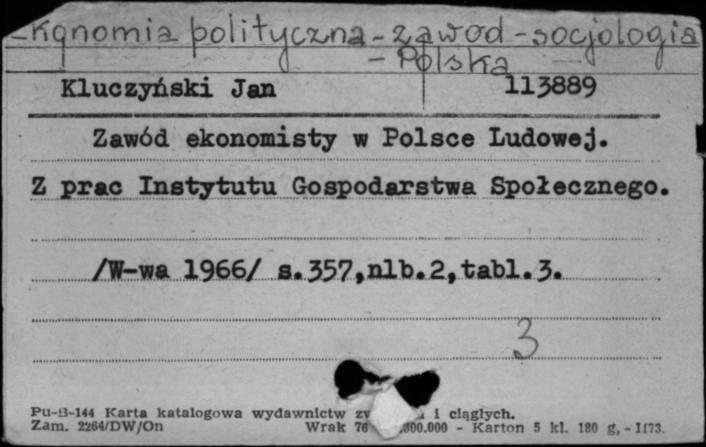 -konomia polityczna - zawód - socjologia
- Polska
Kluczyński Jan 113889
Zawód ekonomisty w Polsce Ludowej.
Z prac Instytutu Gospodarstwa Społecznego.
/W-wa 1966/ s.357,nlb.2,tabl.3.
3
Pu-B-144 Karta katalogowa wydawnictw i ciągłych.
Zam. 2264/DW/On Wrak 76 .300.000 - Karton 5 kl. 180 g, - 1173.